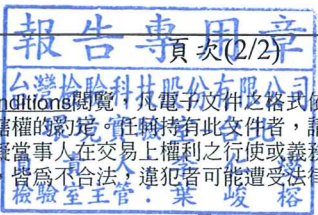 報告專用章
頁次(2/2)
台灣檢驗科技股份有限公司
nditions閱覽，凡電子文件之格式依
轄權的約定。任何持有此文件者，請
當事人在交易上權利之行使或義務
，皆為不合法，違犯者可能遭受法律
檢驗室主管：葉峻榕